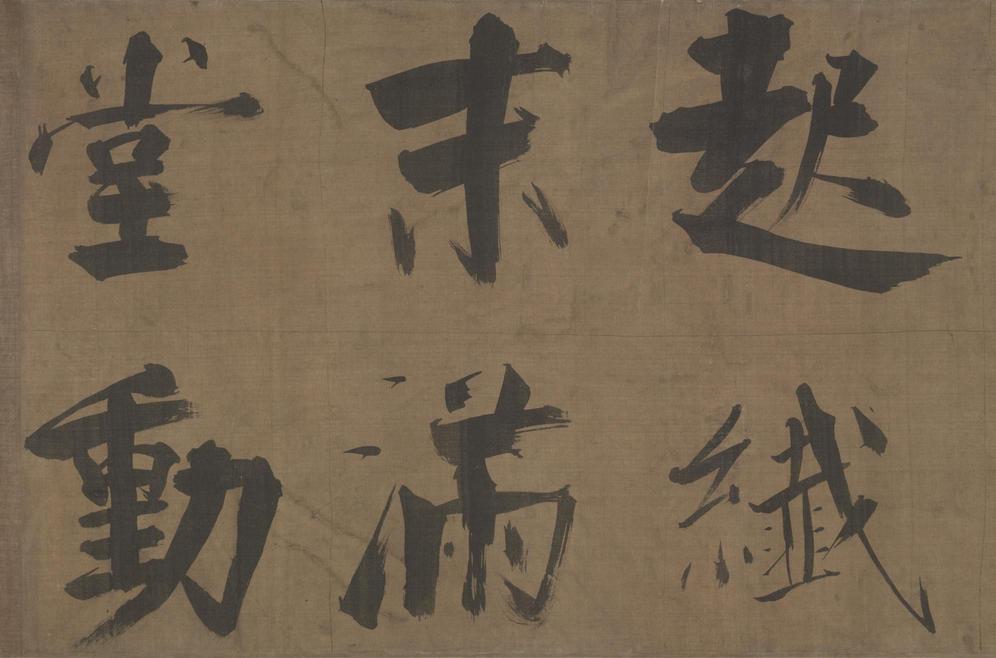 起纖
末滿
堂動